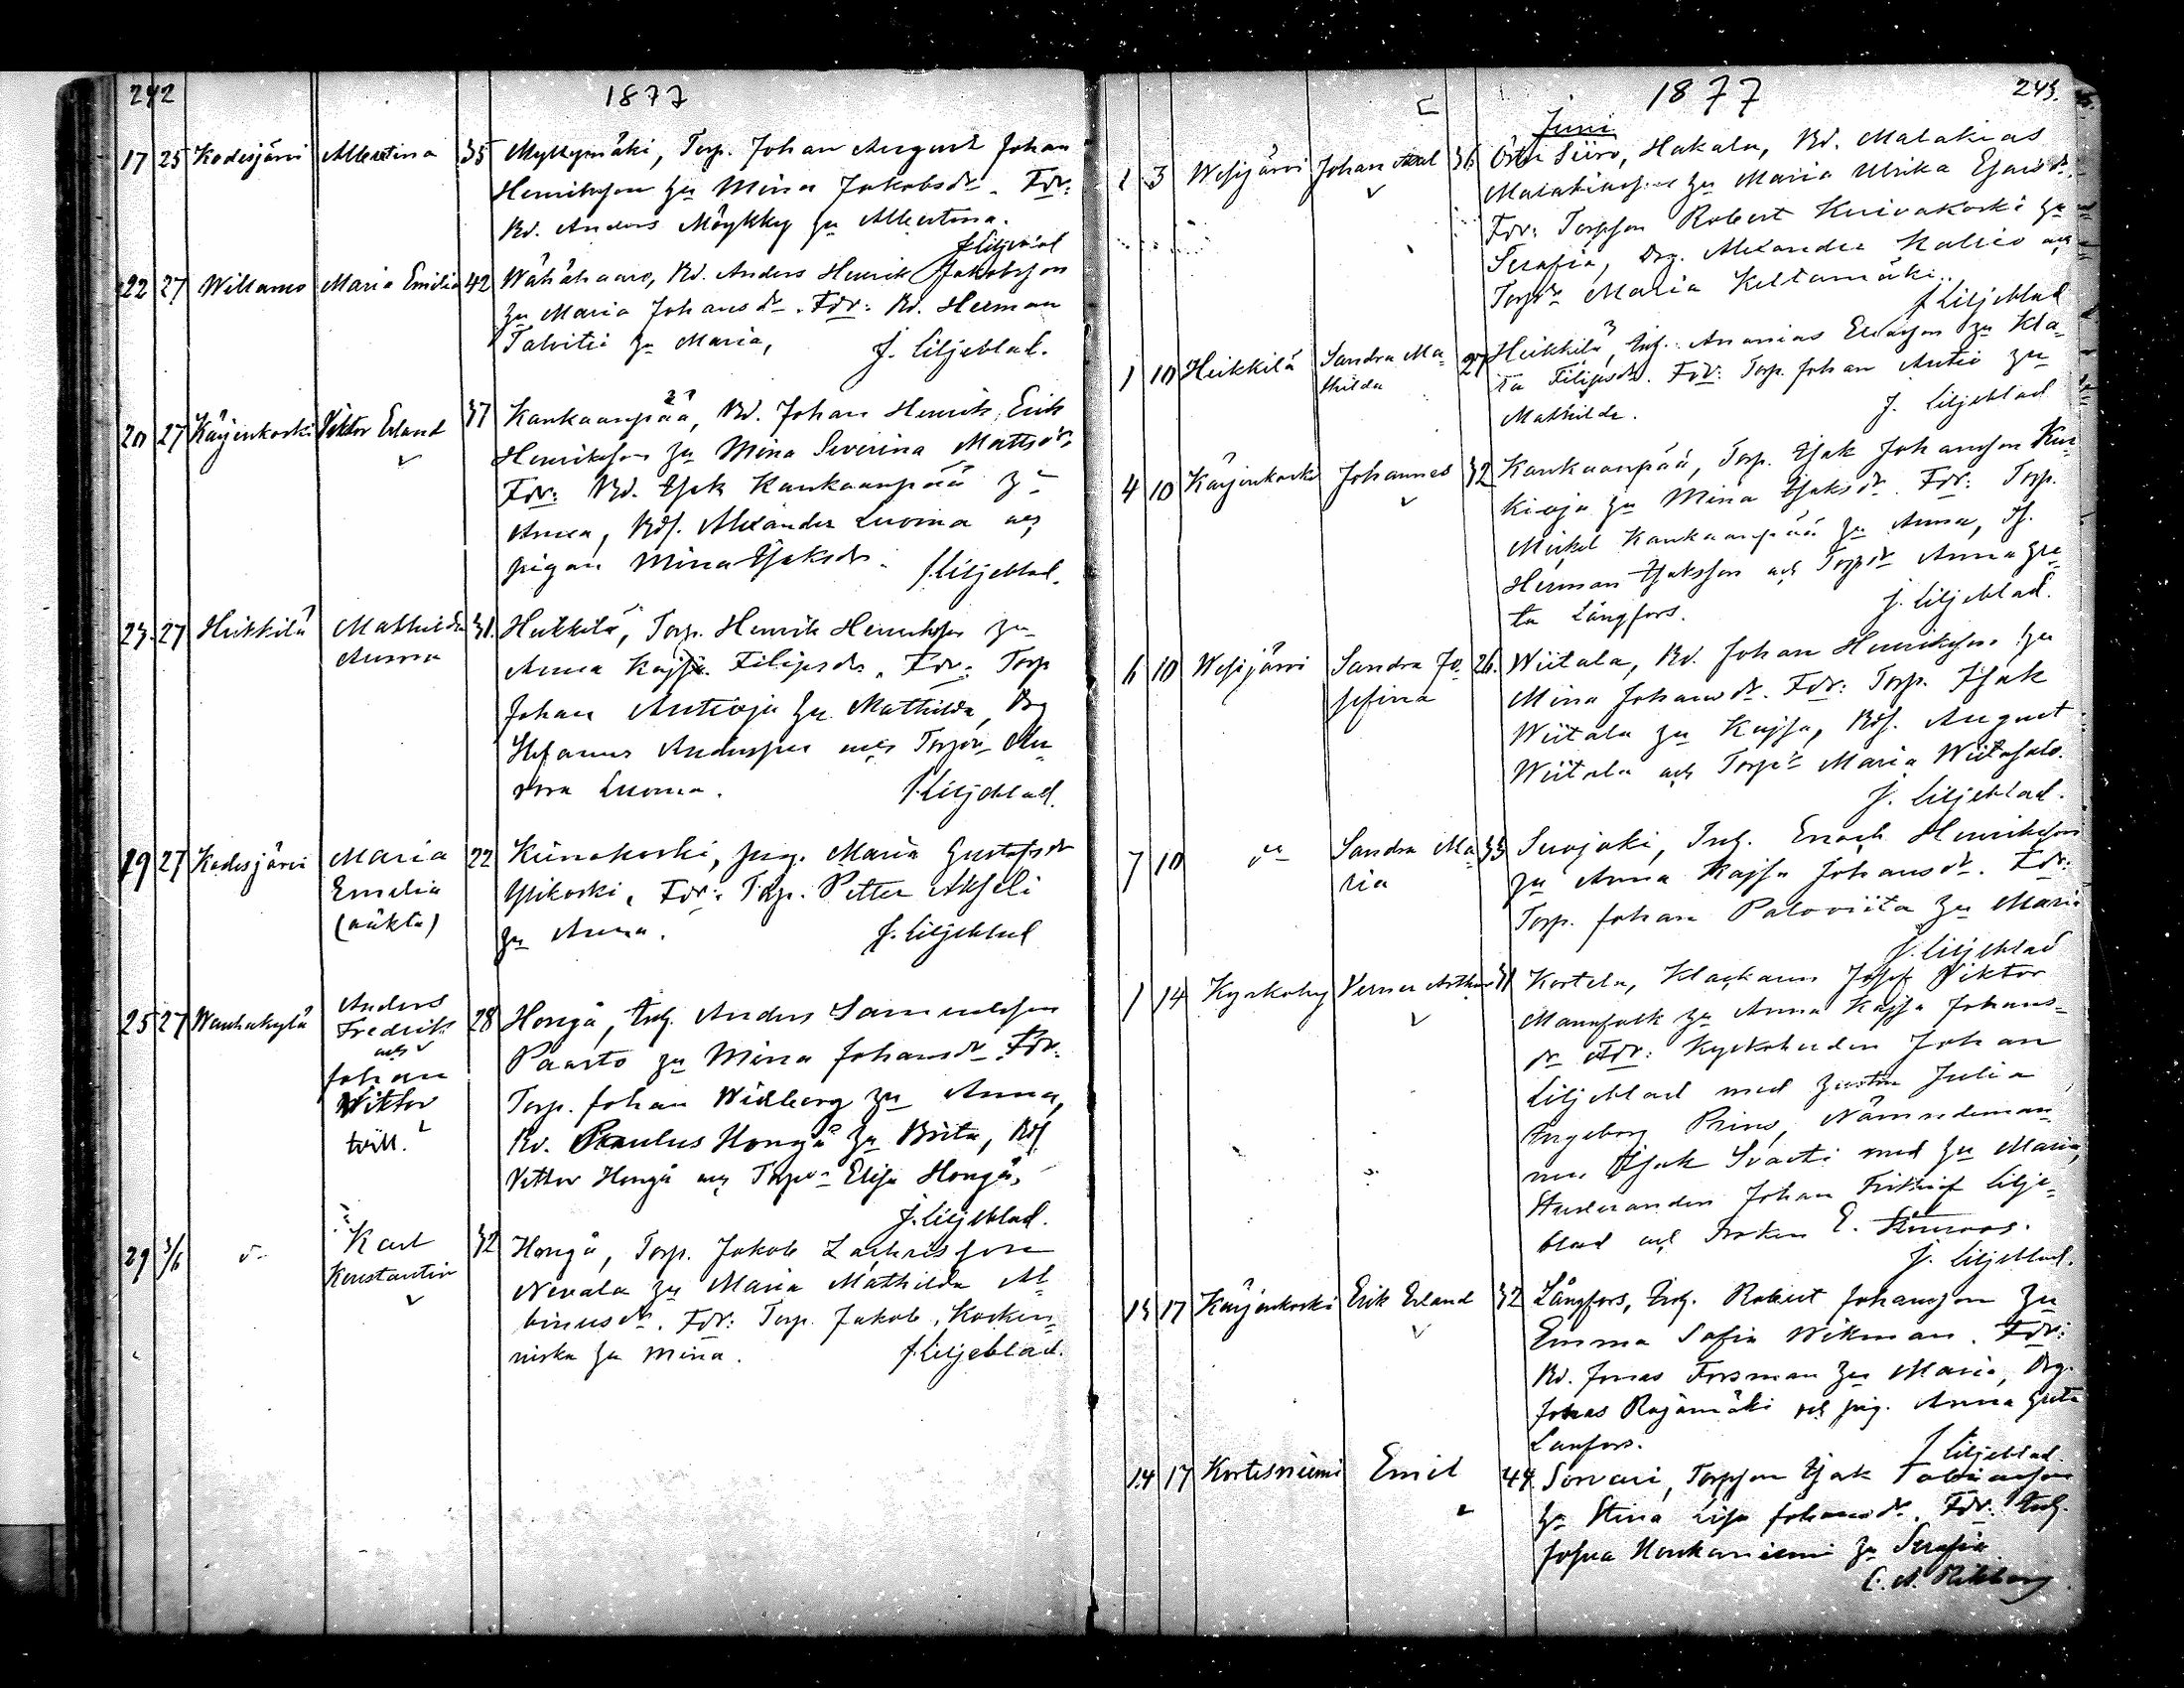 242
1877
17 25 Kodesjärvi Albertina 35 Myllymäki, Torp. Johan August Johan
Henriksson hu Mina Jakobsdr. Fdr:
Bd. Anders Möykky hu Albertina.
J Liljeblad
22 27 Willamo Maria Emilia 42 Wähähaaro, Bd. Anders Henrik Jakobsson
hu Maria Johansdr. Fdr: Bd. Herman
Talvitie hu Maria,
J. Liljeblad.
20 27 Kärjenkoski Viktor Erland 37 Kankaanpää, Bd. Johan Henrik Erik
Henriksson hu Mina Severina Mattsdr.
Fdr: Bd. Isak Kankaanpää hu
Anna, Bds. Alexander Luoma och
pigan Mina Isaksdr.
J Liljeblad.
23 27 Heikkilä Mathilda 31. Heikkilä, Torp. Henrik Henriksson hu
Aurora Anna Kajsa Filipsdr. Fdr: Torp
Johan Antioja hu Mathilda, Drg
Stefanus Andersson och Torpdr Au-
rora Luoma.
J Liljeblad.
19 27 Kodesjärvi Maria 22 Kiinakoski, pig. Maria Gustafsdr
Emelia Ylikoski, Fdr: Torp. Petter Akseli
(oäkta) hu Anna.
J. Liljeblad
25 27 Wanhakylä Anders 28 Hongå, Inh. Anders Samuelsson
Fredrik
och Paarto hu Mina Johansdr. Fdr:
Johan
Wiktor Torp. Johan Widberg hu Anna,
tvill. Bd. Paulus Hongå hu Brita, Bds
Viktor Hongå och Torpdr Elisa Hongå,
J. Liljeblad.
29 3/6 d:o Karl 32 Hongå, Torp. Jakob Zachrisson
Konstantin Nevala hu Maria Mathilda Al-
binusdr. Fdr: Torp. Jakob Korken-
niska hu Mina.
J Liljeblad.
1877
243.
Juni
1 3 Wesijärvi Johan Axel 36 Östri Siiro, Hakala, Bd. Malakias
Malakiasson hu Maria Ulrika Esaisdr.
Fdr: Torpson Robert Kuivakoski hu
Serafia, Drg. Alexander Kallio och
Torpdr Maria Keltamäki.
J Liljeblad
1 10 Heikkilä Sandra Ma- 27 Heikkilä, Inh. Ananias Elisson hu Kla-
thilda ra Filipsdr. Fdr: Torp. Johan Antio hu
Mathilda.
J. Liljeblad
4 10 Kärjenkoski Johannes 32 Kankaanpää, Torp. Isak Johansson Kur-
kioja hu Mina Isaksdr. Fdr: Torp.
Mickel Kankaanpää hu Anna, If.
Herman Isaksson och Torpdr Anna Gre-
ta Långfors.
J. Liljeblad.
6 10 Wesijärvi Sandra Jo- 26. Wiitala, Bd. Johan Henriksson hu
sefina Mina Johansdr. Fdr: Torp. Isak
Wiitala hu Kajsa, Bds. August
Wiitala och Torpdr Maria Wiitasalo.
J. Liljeblad.
7 10 d:o Sandra Ma- 33 Suojoki, Inh. Enoch Henriksson
ria hu Anna Kajsa Johansdr. Fdr:
Torp. Johan Paloviita hu Maria
J. Liljeblad
1 14 Kyrkoby Verner Arthur 31 Kortela, Klockaren Josef Viktor
Mannfolk hu Anna Kajsa Johans-
dr Fdr: Kyrkoherden Johan
Liljeblad med hustru Julia
Ingeborg Prins, Nämndeman-
nen Isak Svarti med hu Maria,
Studeranden Johan Fridhiof Lilje-
blad och Fröken E. Stenroos.
J. Liljeblad.
13 17 Kärjenkoski Erik Erland 32 Långfors, Inh. Robert Johansson hu
Emma Sofia Wikman. Fdr:
Bd. Jonas Forsman hu Maria, Drg.
Jonas Rajamäki och pig. Anna Greta
Lanfors.
J Liljeblad.
14 17 Kortesniemi Emil 44 Sorvari, Torpson Isak Tobiasson
hu Stina Lisa Johansdr. Fdr: Inh.
Josua Koukaniemi hu Serafia